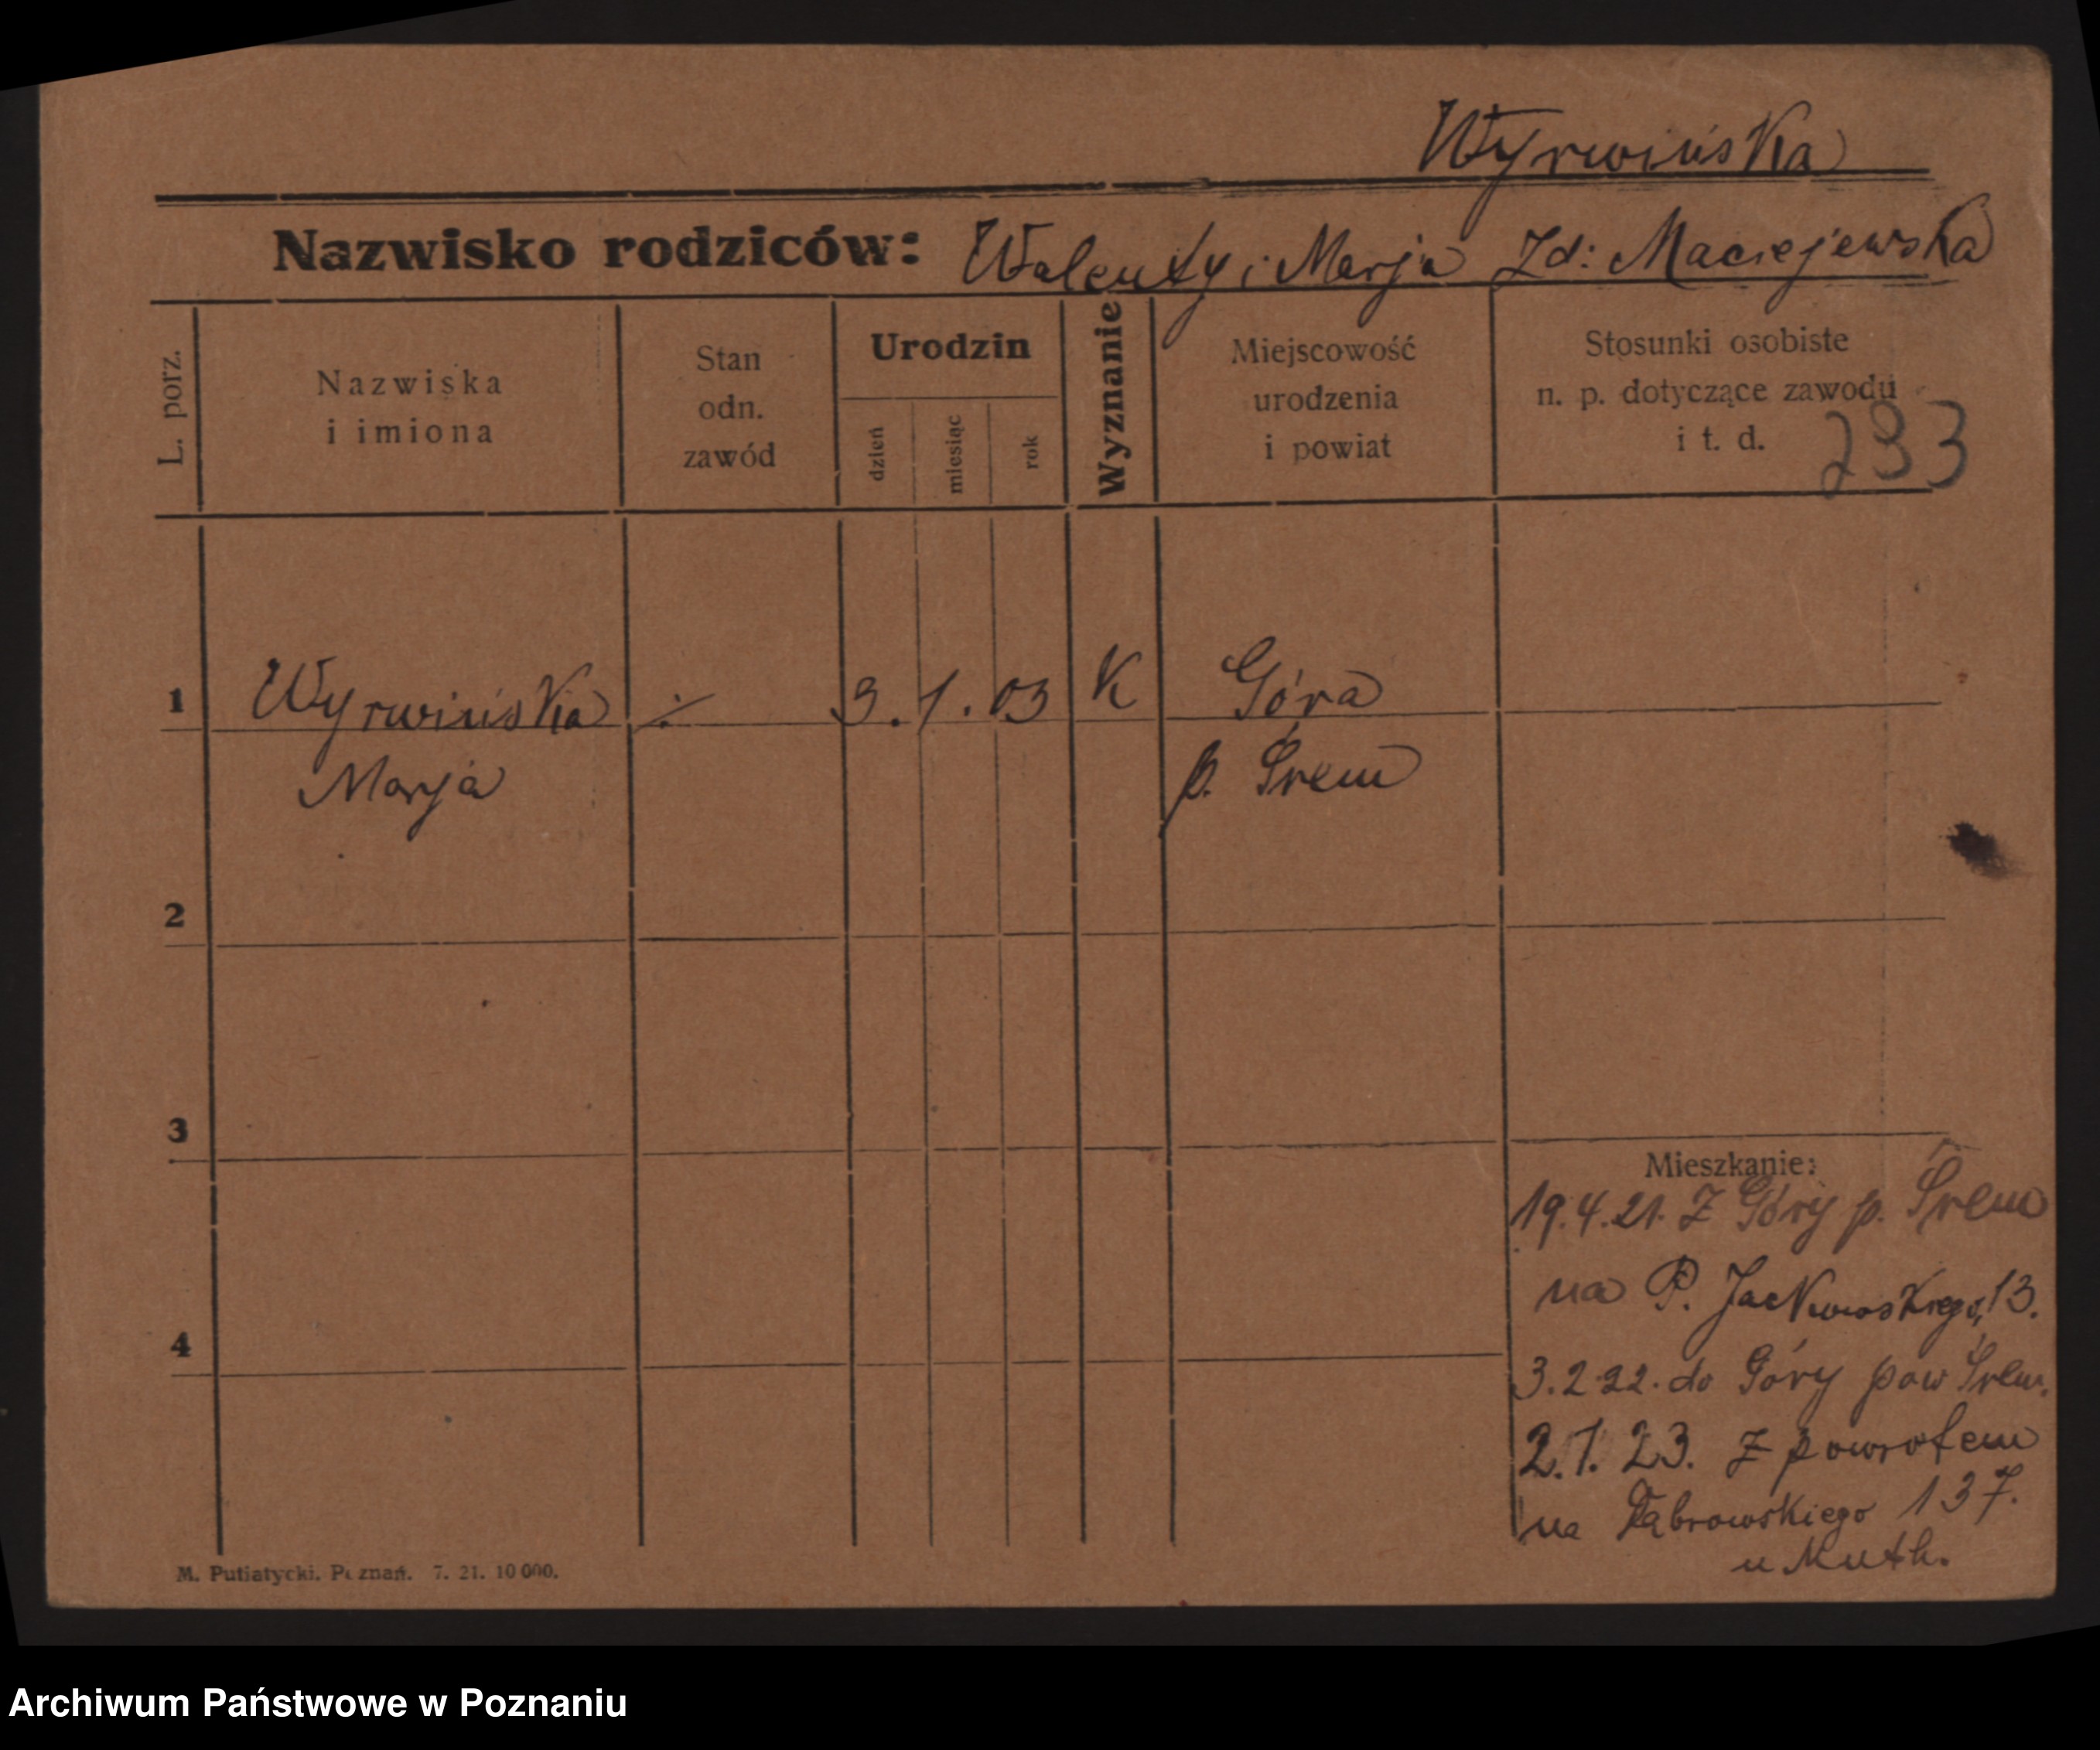 Wyrwińska
Nazwisko rodziców: Walenty i Marja Zd: Maciejewska
L. porz.
Nazwiska
i imiona
Stan
odn.
zawód
Urodzin
dzień
miesiąc
rok
Wyznanie
Miejscowość
urodzenia
i powiat
Stosunki osobiste
n. p. dotyczące zawodu
i t. d.
233
1 Wyrwińska ÷ 3. 1. 03 K Góra
Marja p. Śrem
2
3
4
Mieszkanie:
19.4.21. Z Góry p. Śrem
na P. Jackowskiego, 13.
3.2.22. do Góry pow Śrem.
2.1.23. z powrotem
na Dąbrowskiego 137.
u Muth.
M. Putiatycki, Poznań. 7. 21. 10 000.
Archiwum Państwowe w Poznaniu